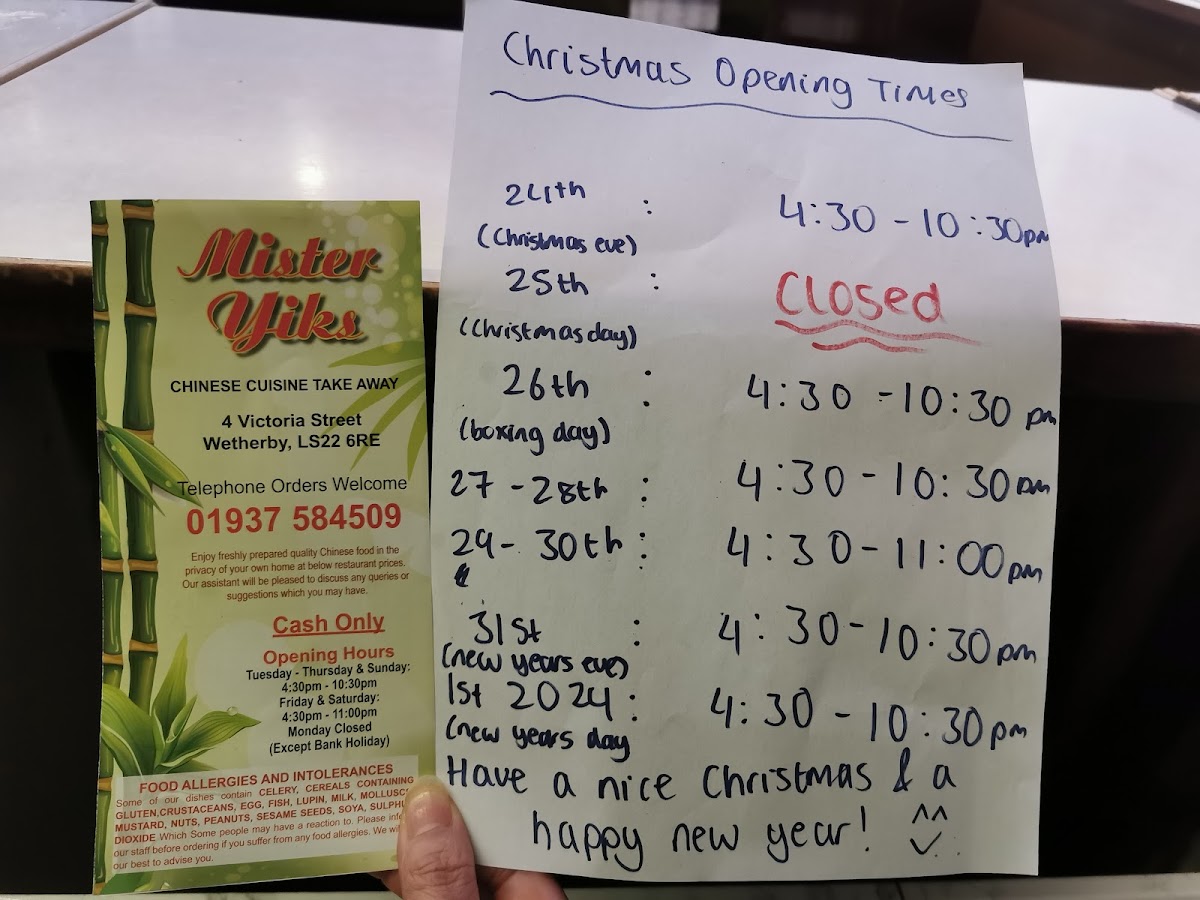 Mister
Yiks
CHINESE CUISINE TAKE AWAY
4 Victoria Street
Wetherby, LS22 6RE
Telephone Orders Welcome
01937 584509
Enjoy freshly prepared quality Chinese food in the
privacy of your own home at below restaurant prices.
Our assistant will be pleased to discuss any queries or
suggestions which you may have.
Cash Only
Opening Hours
Tuesday - Thursday & Sunday:
4:30pm - 10:30pm
Friday & Saturday:
4:30pm - 11:00pm
Monday Closed
(Except Bank Holiday)
FOOD ALLERGIES AND INTOLERANCES
Some of our dishes contain CELERY, CEREALS CONTAINING
GLUTEN,CRUSTACEANS, EGG, FISH, LUPIN, MILK,
MUSTARD, NUTS, PEANUTS, SESAME SEEDS, SOYA,
DIOXIDE Which Some people may have a reaction to. Please
our staff before ordering if you suffer from any food allergies. We
our best to advise you.
Christmas Opening Times
24th : 4:30 - 10:30pm
(Christmas eve)
25th : Closed
(Christmas day)
26th : 4:30 - 10:30 pm
(boxing day)
27 - 28th : 4:30 - 10:30pm
29 - 30th : 4:30 - 11:00pm
31st : 4:30 - 10:30pm
(new years eve)
1st 2024 : 4:30 - 10:30pm
(new years day
Have a nice Christmas & a
happy new year! ^^